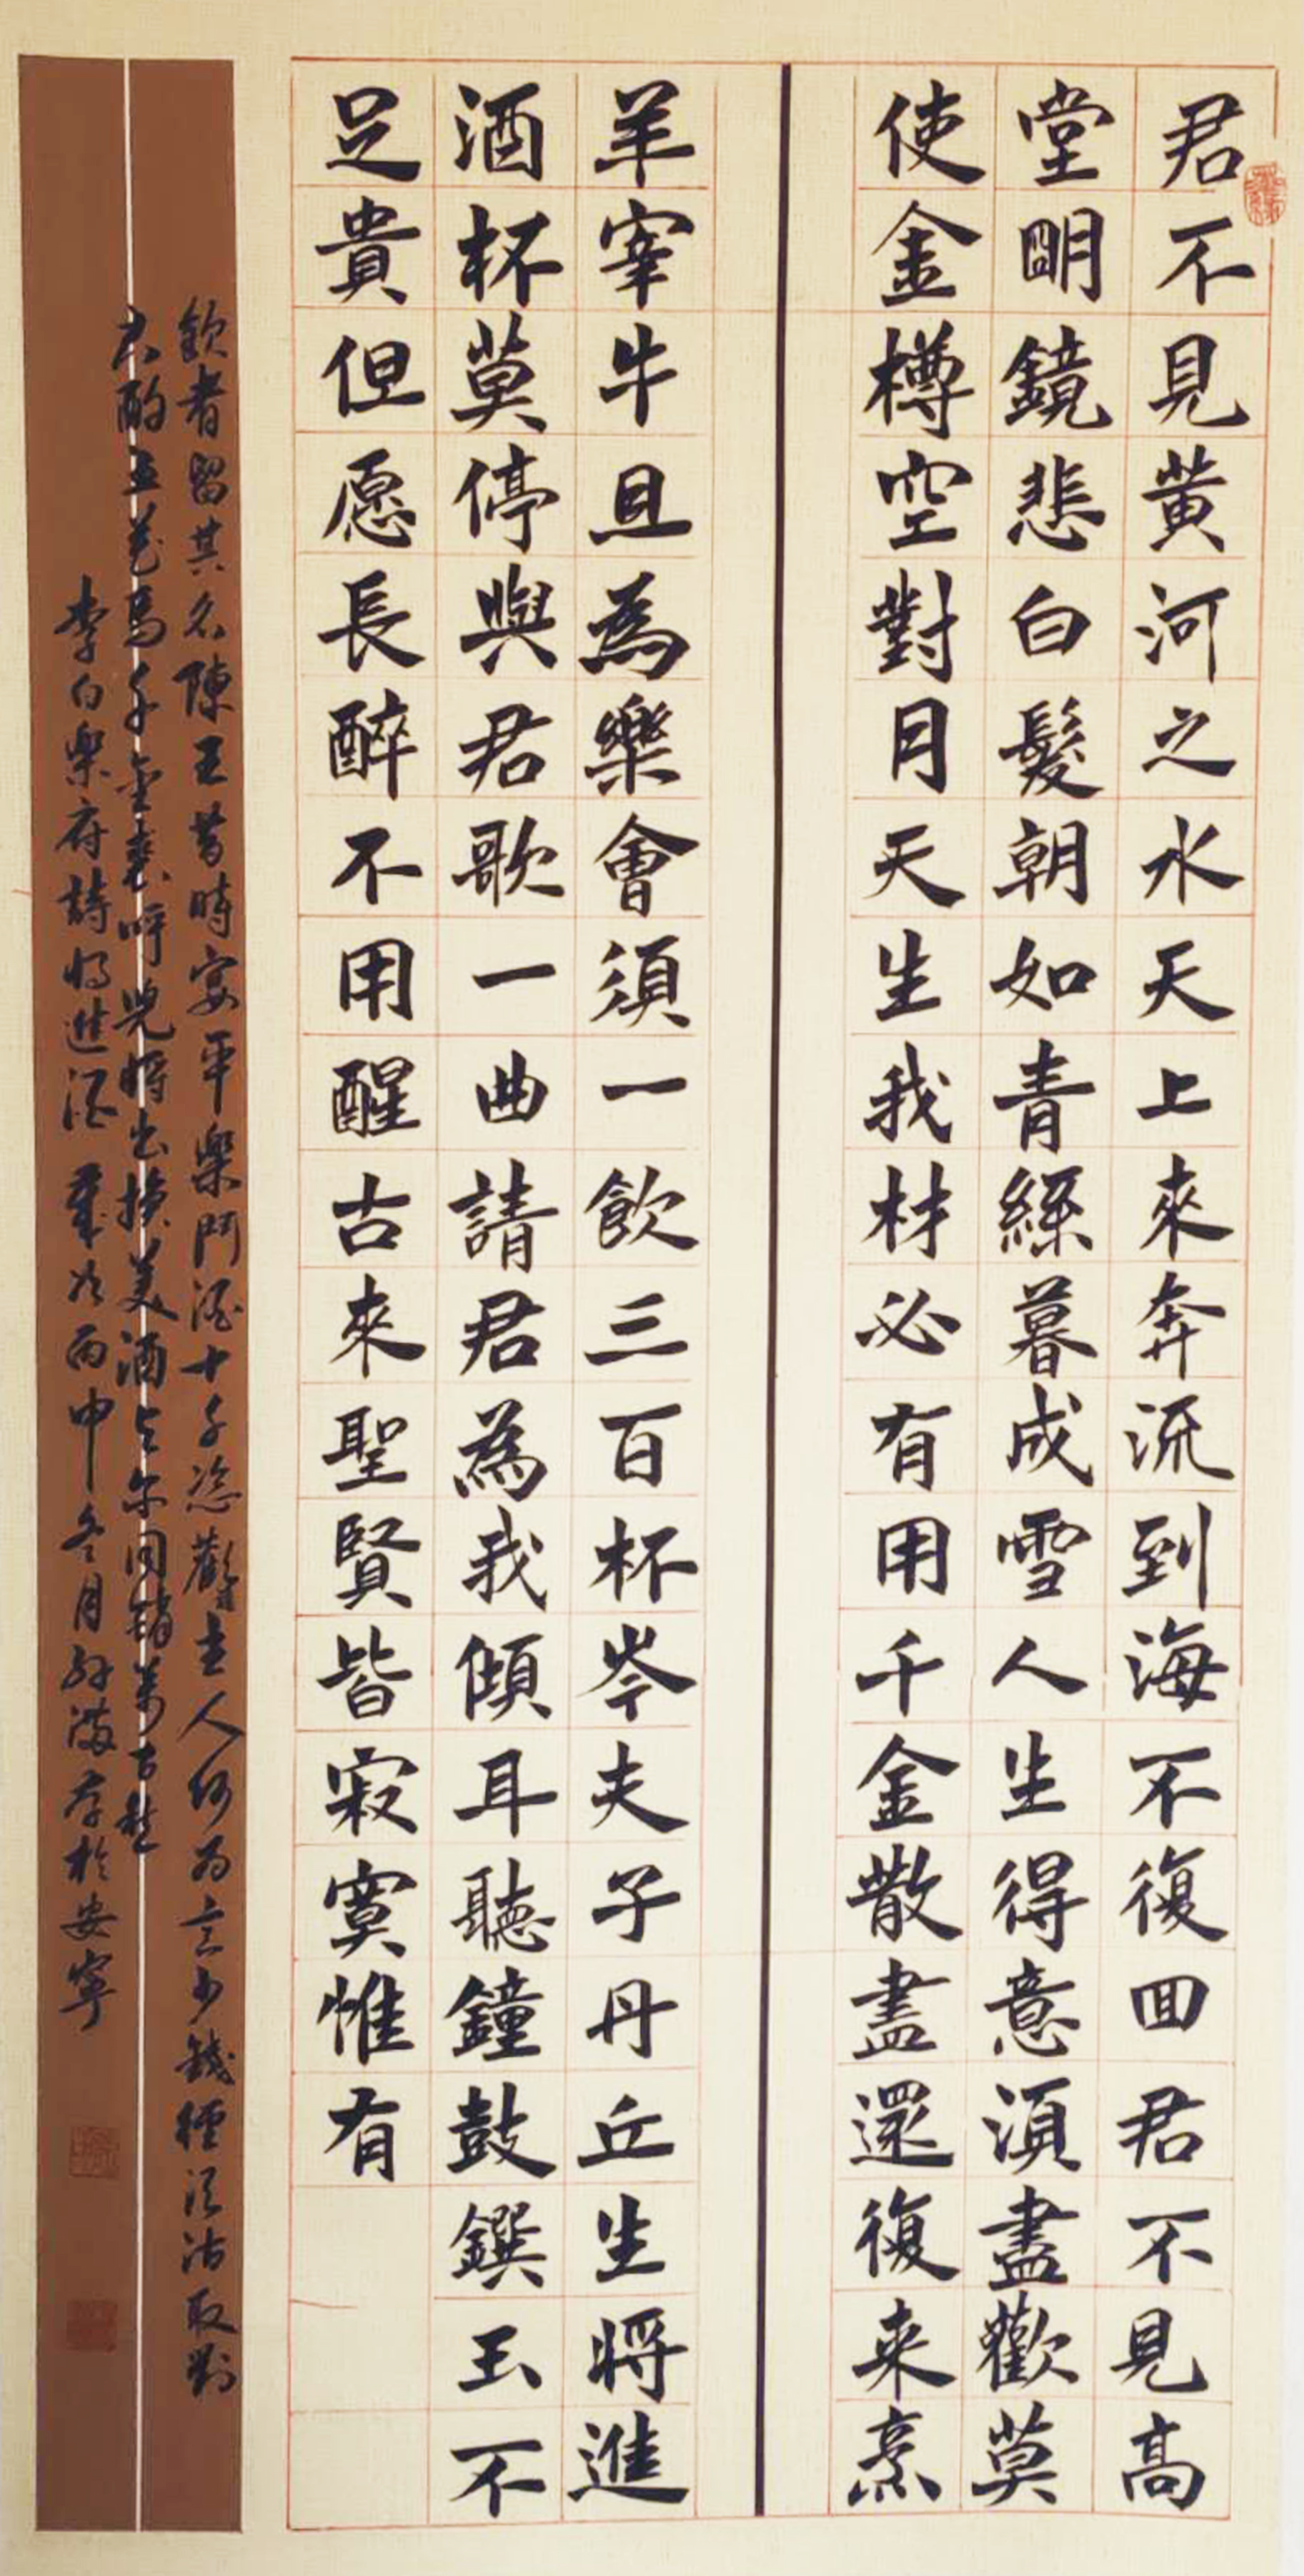 君不見黄河之水天上來奔流到海不復回君不見高
堂明鏡悲白髮朝如青絲暮成雪人生得意須盡歡莫
使金樽空對月天生我材必有用千金散盡還復来烹
羊宰牛且為樂會須一飲三百杯岑夫子丹丘生將進
酒杯莫停與君歌一曲請君為我傾耳聽鐘鼓鐉玉不
足貴但愿長醉不用醒古來聖賢皆寂寞惟有
飲者留其名陳王昔時宴平樂鬥酒十千恣歡主人何为言少錢徑須沽取對
君酌五花馬千金裘呼兒將出換美酒与尔同銷萬古愁
李白樂府詩將進酒 歲次丙申冬月於安寧